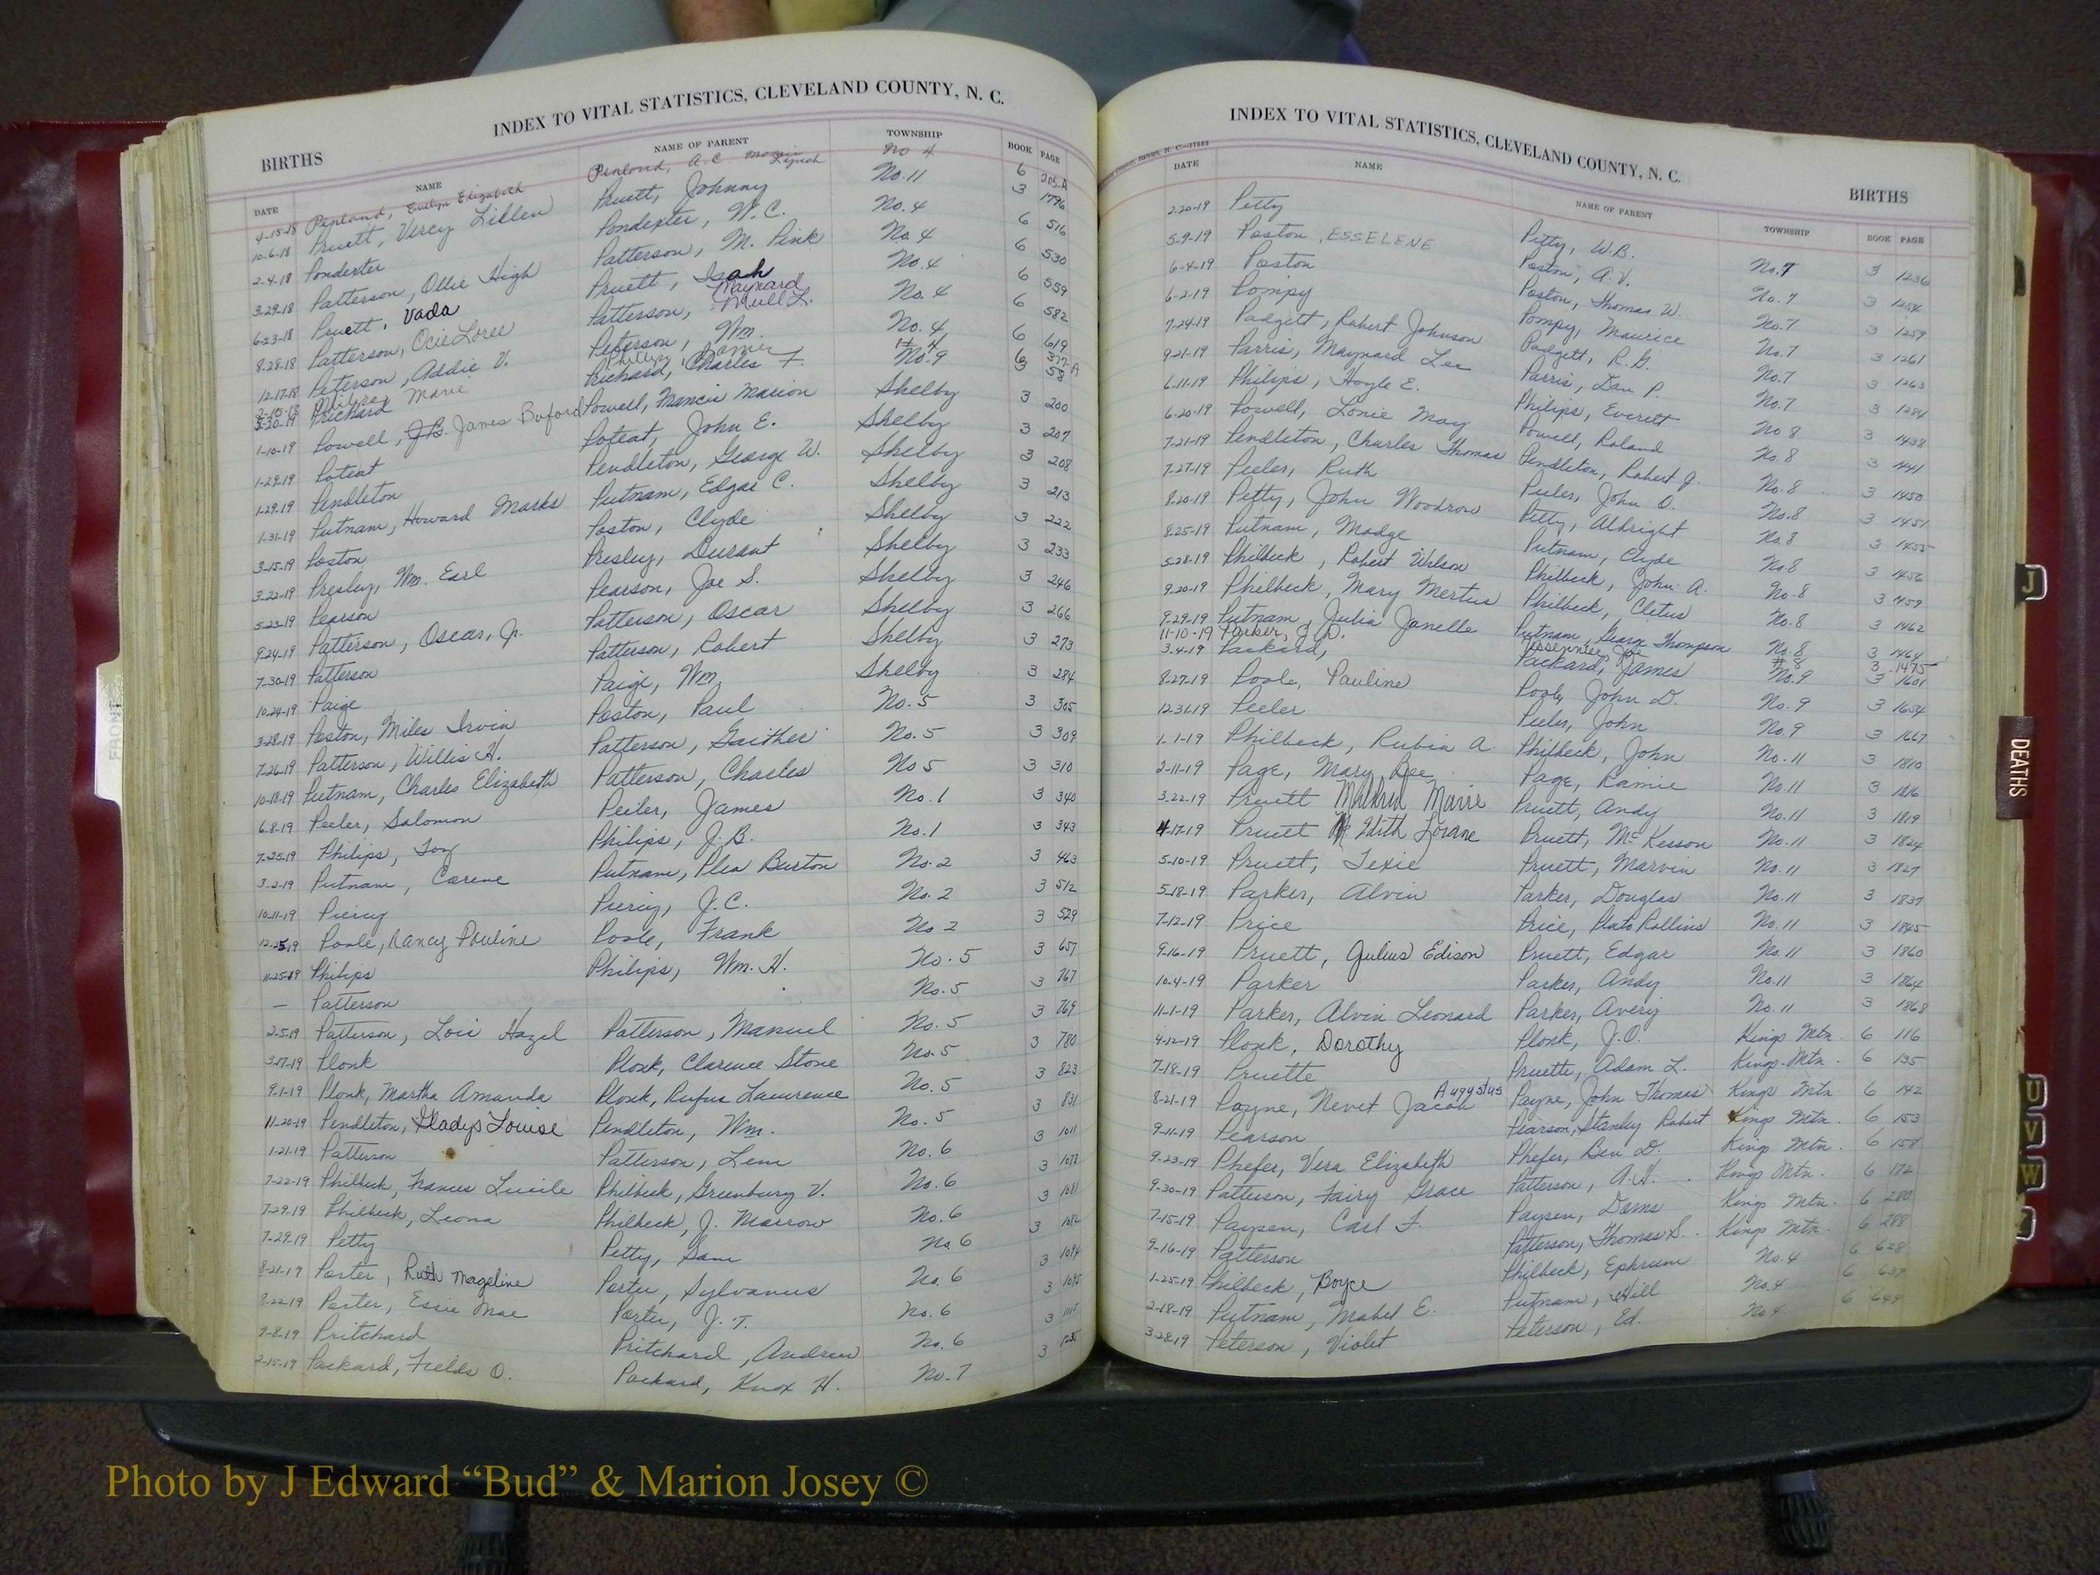 INDEX TO VITAL STATISTICS, CLEVELAND COUNTY, N. C.
BIRTHS
DATE NAME NAME OF PARENT TOWNSHIP BOOK PAGE
4-15-18 Penland, Evelyn Elizabeth Penland, A.C. Lynch No 4 6 205-A
10-6-18 Pruett, Vercy Lillen Pruett, Johnny No. 11 3 1796
2-4-18 Pondexter Pondexter, W.C. No. 4 6 516
3-29-18 Patterson, Ollie High Patterson, M. Pink No. 4 6 530
6-23-18 Pruett, Vada Pruett, Isah No. 4 6 559
8-28-18 Patterson, Ocie Loree Patterson, Maynard No. 4 6 582
12-17-18 Peterson, Addie V. Peterson, Wm. No. 4 6 619
Marie
3-30-19 Prichard Prichard, Charles F. No. 9 3 53
1-10-19 Powell, J.B. James Buford Powell, Francis Marion Shelby 3 200
1-29-19 Poteat Poteat, John E. Shelby 3 207
1-29-19 Pendleton Pendleton, George W. Shelby 3 208
1-31-19 Putnam, Howard Marks Putnam, Edgar C. Shelby 3 213
3-15-19 Poston Poston, Clyde Shelby 3 222
3-22-19 Presley, Wm. Earl Presley, Durant Shelby 3 233
5-23-19 Pearson Pearson, Joe S. Shelby 3 246
9-24-19 Patterson, Oscar, Jr. Patterson, Oscar Shelby 3 266
7-30-19 Patterson Patterson, Robert Shelby 3 273
10-24-19 Paige Paige, Wm. Shelby 3 284
3-28-19 Poston, Miles Irvin Poston, Paul No. 5 3 305
7-26-19 Patterson, Willis H. Patterson, Gaither No. 5 3 309
10-18-19 Putnam, Charles Elizabeth Patterson, Charles No 5 3 310
6-8-19 Peeler, Salomon Peeler, James No. 1 3 340
7-25-19 Philips, Toy Philips, J.B. No. 1 3 343
3-2-19 Putnam, Corene Putnam, Plea Burton No. 2 3 463
10-11-19 Piercy Piercy, J.C. No. 2 3 512
12-25-19 Poole, Nancy Pauline Poole, Frank No 2 3 529
11-25-19 Philips Philips, Wm. H. No. 5 3 657
— Patterson No. 5 3 767
2-5-19 Patterson, Loii Hazel Patterson, Manuel No. 5 3 769
3-17-19 Plonk Plonk, Clarence Stone No. 5 3 780
9-1-19 Plonk, Martha Amanda Plonk, Rufus Lawrence No. 5 3 823
11-20-19 Pendleton, Gladys Louise Pendleton, Wm. No. 5 3 831
1-21-19 Patterson Patterson, Lem No. 6 3 1011
7-22-19 Philbeck, Frances Lucile Philbeck, Greenbury V. No. 6 3 1078
7-29-19 Philbeck, Leona Philbeck, J. Marrow No. 6 3 1081
7-29-19 Petty Petty, Sam No. 6 3 1082
8-21-19 Porter, Ruth Mageline Porter, Sylvanus No. 6 3 1094
8-22-19 Porter, Essie Mae Porter, J.T. No. 6 3 1095
9-8-19 Pritchard Pritchard, Andrew No. 6 3
2-15-19 Packard, Fields O. Packard, Knox H. No. 7 3
INDEX TO VITAL STATISTICS, CLEVELAND COUNTY, N. C.
BIRTHS
DATE NAME NAME OF PARENT TOWNSHIP BOOK PAGE
2-20-19 Petty Petty, W.B. No. 7 3 1236
5-9-19 Poston, ESSELENE Poston, A.V. No. 7 3 1254
6-4-19 Poston Poston, Thomas W. No. 7 3 1259
6-2-19 Pompy Pompy, Maurice No. 7 3 1261
7-24-19 Padgett, Robert Johnson Padgett, R.G. No. 7 3 1263
9-21-19 Parris, Maynard Lee Parris, Dan P. No. 7 3 1284
6-11-19 Philips, Hoyle E. Philips, Everett No 8 3 1438
6-20-19 Powell, Lonie May Powell, Roland No. 8 3 1441
7-21-19 Pendleton, Charles Thomas Pendleton, Robert J. No. 8 3 1450
7-27-19 Peeler, Ruth Peeler, John O. No. 8 3 1451
8-20-19 Petty, John Woodrow Petty, Albright No. 8 3 1455
8-25-19 Putnam, Madge Putnam, Clyde No 8 3 1456
5-28-19 Philbeck, Robert Wilson Philbeck, John A. No. 8 3 1459
9-20-19 Philbeck, Mary Mertus Philbeck, Cletus No. 8 3 1462
9-29-19 Putnam, Julia Janelle Putnam, George Thompson No. 8 3 1464
11-10-19 Parker, J.D. #8 3 1475
3-4-19 Packard, Packard, James No. 9 3 1601
8-27-19 Poole, Pauline Poole, John D. No. 9 3 1634
12-31-19 Peeler Peeler, John No. 9 3 1667
1-1-19 Philbeck, Rubin A Philbeck, John No. 11 3 1810
2-11-19 Page, Mary Bee Page, Ramie No. 11 3 1816
3-22-19 Pruett Mildred Maire Pruett, Andy No. 11 3 1819
4-17-19 Pruett Edith Lorane Pruett, McKesson No. 11 3 1824
5-10-19 Pruett, Texie Pruett, Marvin No. 11 3 1827
5-18-19 Parker, Alvin Parker, Douglas No. 11 3 1837
7-12-19 Price Price, Plato Rollins No. 11 3 1845
9-16-19 Pruett, Julius Edison Pruett, Edgar No. 11 3 1860
10-4-19 Parker Parker, Andy No. 11 3 1864
11-1-19 Parker, Alvin Leonard Parker, Avery No. 11 3 1868
4-12-19 Plonk, Dorothy Plonk, J.O. Kings Mtn. 6 116
7-18-19 Pruette Pruette, Adam L. Kings Mtn. 6 135
8-21-19 Payne, Nevet Jacob Augustus Payne, John Thomas Kings Mtn. 6 142
9-11-19 Pearson Pearson, Stanley Robert Kings Mtn. 6 153
9-23-19 Phefer, Vera Elizabeth Phefer, Ben D. Kings Mtn. 6 158
9-30-19 Patterson, Fairy Grace Patterson, A.H. Kings Mtn. 6 172
7-15-19 Paysen, Carl F. Paysen, Dams Kings Mtn. 6 280
9-16-19 Patterson Patterson, Thomas S. Kings Mtn. 6 288
1-25-19 Philbeck, Boyce Philbeck, Ephrum No. 4 6 628
2-18-19 Putnam, Mabel E. Putnam, Hill No. 4 6
3-28-19 Peterson, Violet Peterson, Ed. No 4 6 649
FRONT
J
DEATHS
U
V
W
Photo by J Edward “Bud” & Marion Josey ©